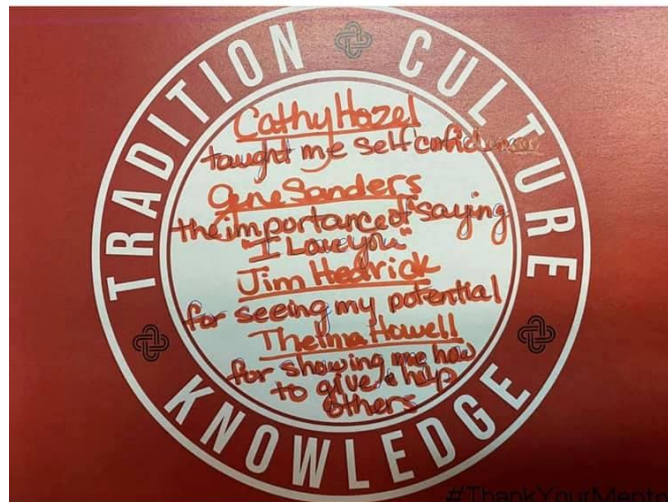 TRADITION CULTURE
Cathy Hozel
taught me selfconfidence
Gene Sanders
the importance of "saying
"I Love you"
Jim Hedrick
for seeing my potential
Thelma Howell
for showing me how
to give & help
others
KNOWLEDGE